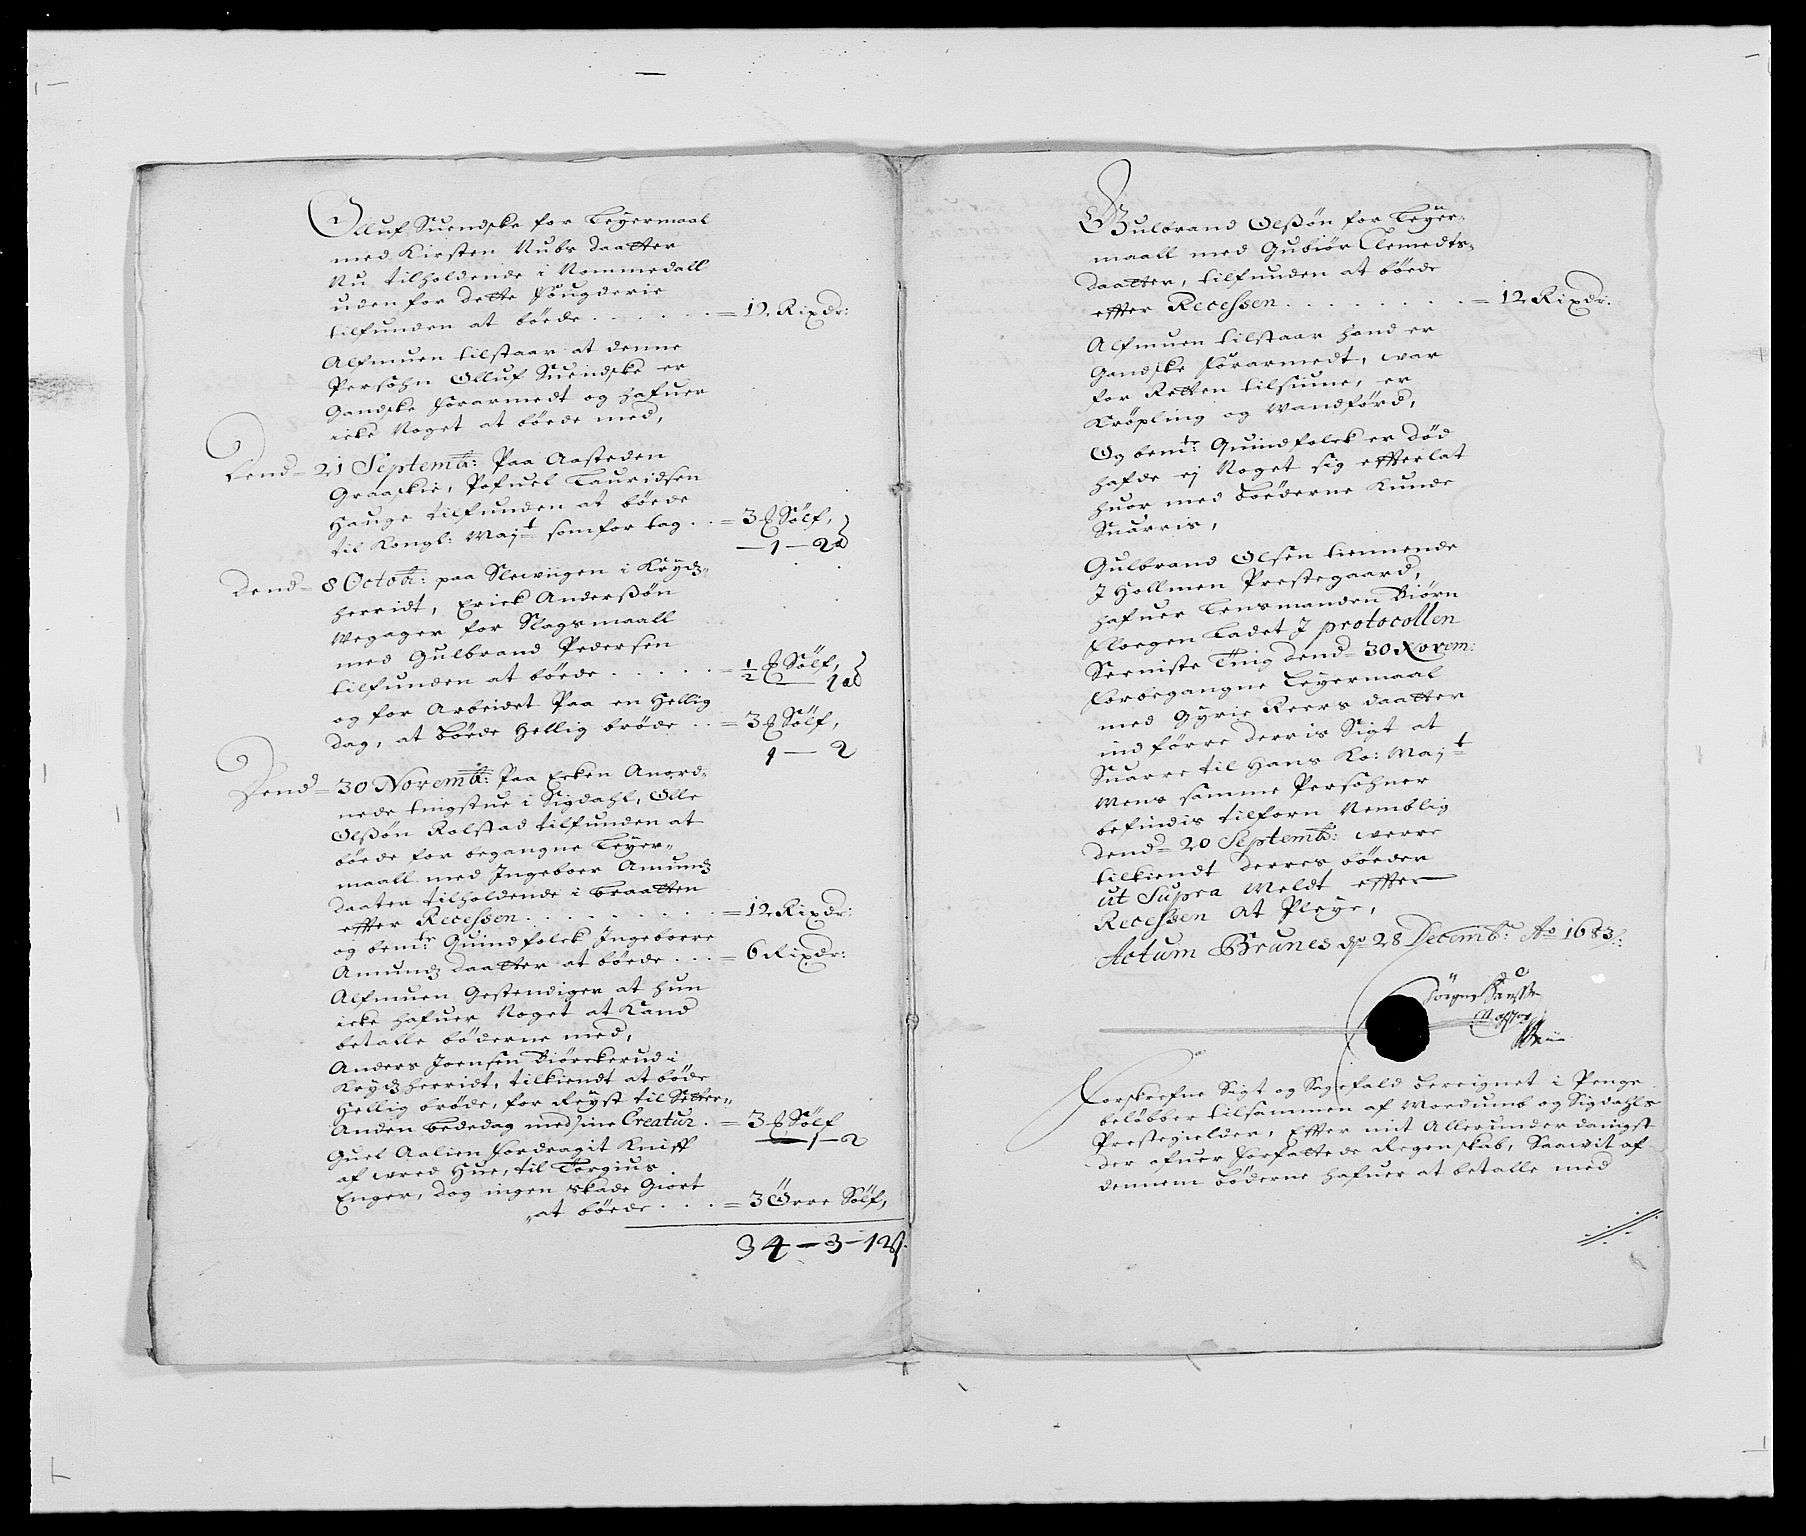 Olluf Suendske for Leyermaal
med Kirsten Nubs daatter
Nu tilholdende i Nommedall
uden for dette fougderie
tilfunden at bøede . . . . . . = 12 Rixdr:
Alfmuen tilstaar at denne
Persohn Olluf Suendske er
Gandske forarmedt og hafuer
icke Noget at bøede med,
Dend = 21 Septembr: Paa Aasteden
Graaskie, Pofuel Lauridsen
Hauge tilfunden at bøede
til Kongl: Maj:t som for tag . . = 3 ℔ Sølf,
— 1 — 2 d
Dend = 8 Octobr: paa Slewiigen i Krydz-
herridt, Erick Anderßøn
Wegager for Slagsmaall
med Gulbrand Pedersen
tilfunden at bøede . . . . . = 1/2 ℔ Sølf,
og for Arbeidet Paa en Hellig
dag, at bøede Hellig brøde . . = 3 ℔ Sølf,
1 — 2
Dend = 30 Novembr: Paa Ecken Anord-
nede tingstue i Sigdahl, Olle
Olßøn Kolstad tilfunden at
bøede for begangne Leyer-
maall med Ingeboer Amundz
daater tilholdende i Braatten
effter Recessen . . . . . . . . . = 12 Rixdr:
og bem:te Quindfolck Ingeborre
Amundz daatter at bøede . . . = 6 Rixdr:
Alfmuen Gestendiger at hun
icke hafuer Noget at Kand
betalle bøderne med,
Anders Joensen Biørckerud i
Krydzherridt, tilkiendt at bøde
Hellig brøde, for Reyst til Setter-
Anden bededag med sine Creatur . = 3 ℔ Sølf
— 1 — 2
Guel Aalien fordragit Kniff
af wred Hue, til Torgius
Enger, dog ingen skade Giort
at bøede . . . = 3 Örre Sølf,
34 — 3 — 12 ß.
Gulbrand Olßøn for Leyer-
maall med Gubiør Clemedts-
daatter, tilfunden at bøede
effter Recessen . . . . . . . . = 12 Rixdr:
Alfmuen tilstaar hand er
Gandske forarmedt, war
for Retten tilsiune, er
Krøpling og Wandførd,
Og bem:te Quindfolck er død
hafde ej Noget sig effterlat
huor med bøederne Kunde
Suarris,
Gulbrand Olsen tiennende
J Hollmen Prestegaard,
hafuer Lensmanden Biørn
Floegen Ladet J protocollen
Seeniste Ting dend = 30 Novem:
forbegangne Leyermaal
med Gyrie Reers daatter
ind førre derris Sigt at
Suarre til Hans Ko: Maj:t
Mens samme Persohner
befindis tilforn Nemblig
dend = 20 Septembr: werre
tilkiendt derres bøeder
ut Supra Meldt effter
Recessen at Pleye,
Actum Brunes d 28 Decemb: Ao 1683.
Forskrefne Sigt og Sagefald bereignet i Penge
beløbber tilsammen af Moedumb og Sigdahls
Prestegielder, Effter mit Allerunderdanigst
der ofuer forfattede Regenskab, Saawit af
dennem bøderne hafuer at betalle med